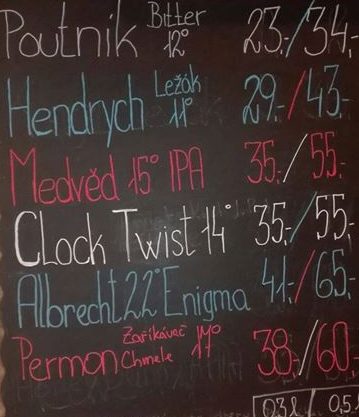 Poutník Bitter 12° 23,-/34,-
Hendrych Ležák 11° 29,-/43,-
Medvěd 15° IPA 35,/55,-
CLock Twist 14° 35,-/55,-
Albrecht 22° Enigma 41,-/65,-
Permon Zaříkávač Chmele 17° 38,-/60,-
0,3l / 0,5